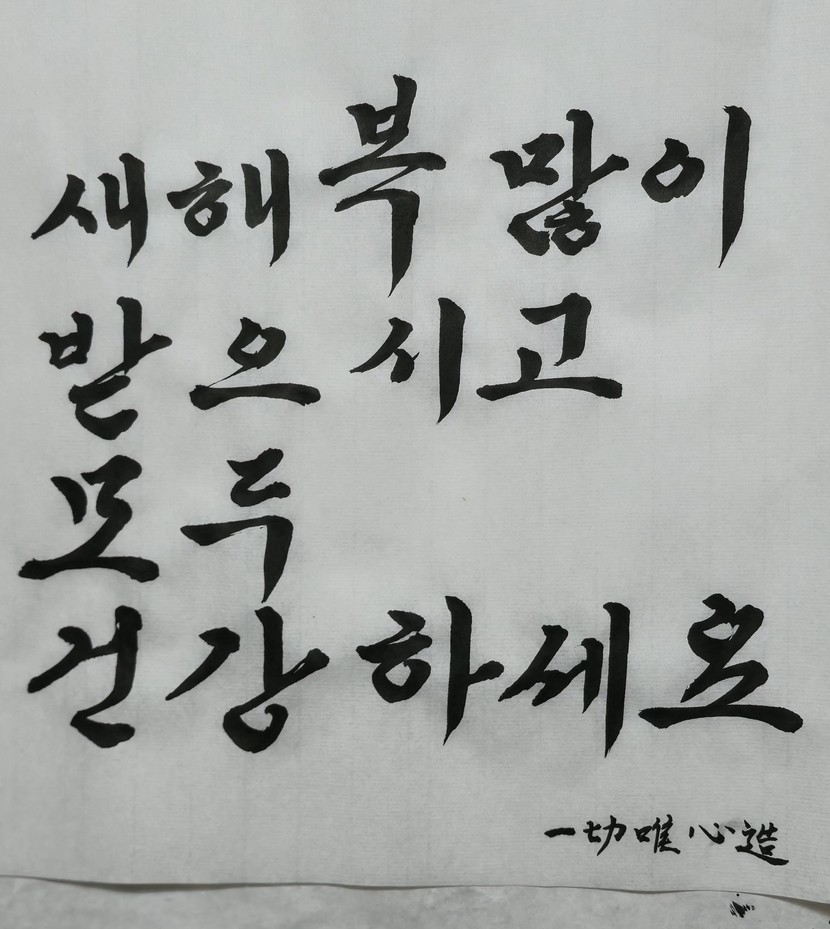 새해 복 많이
받으시고
모두
건강하세요
一切唯心造